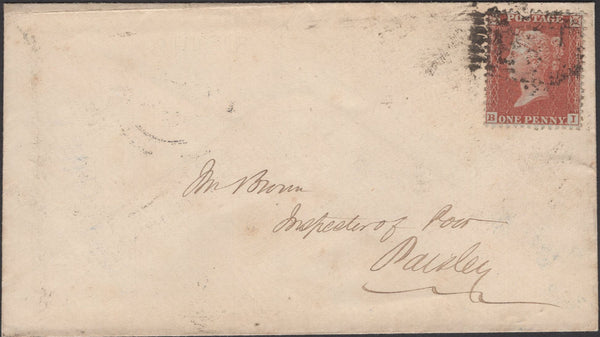 POSTAGE
ONE PENNY
B I
Mr Brown
Inspector of Poor
Paisley